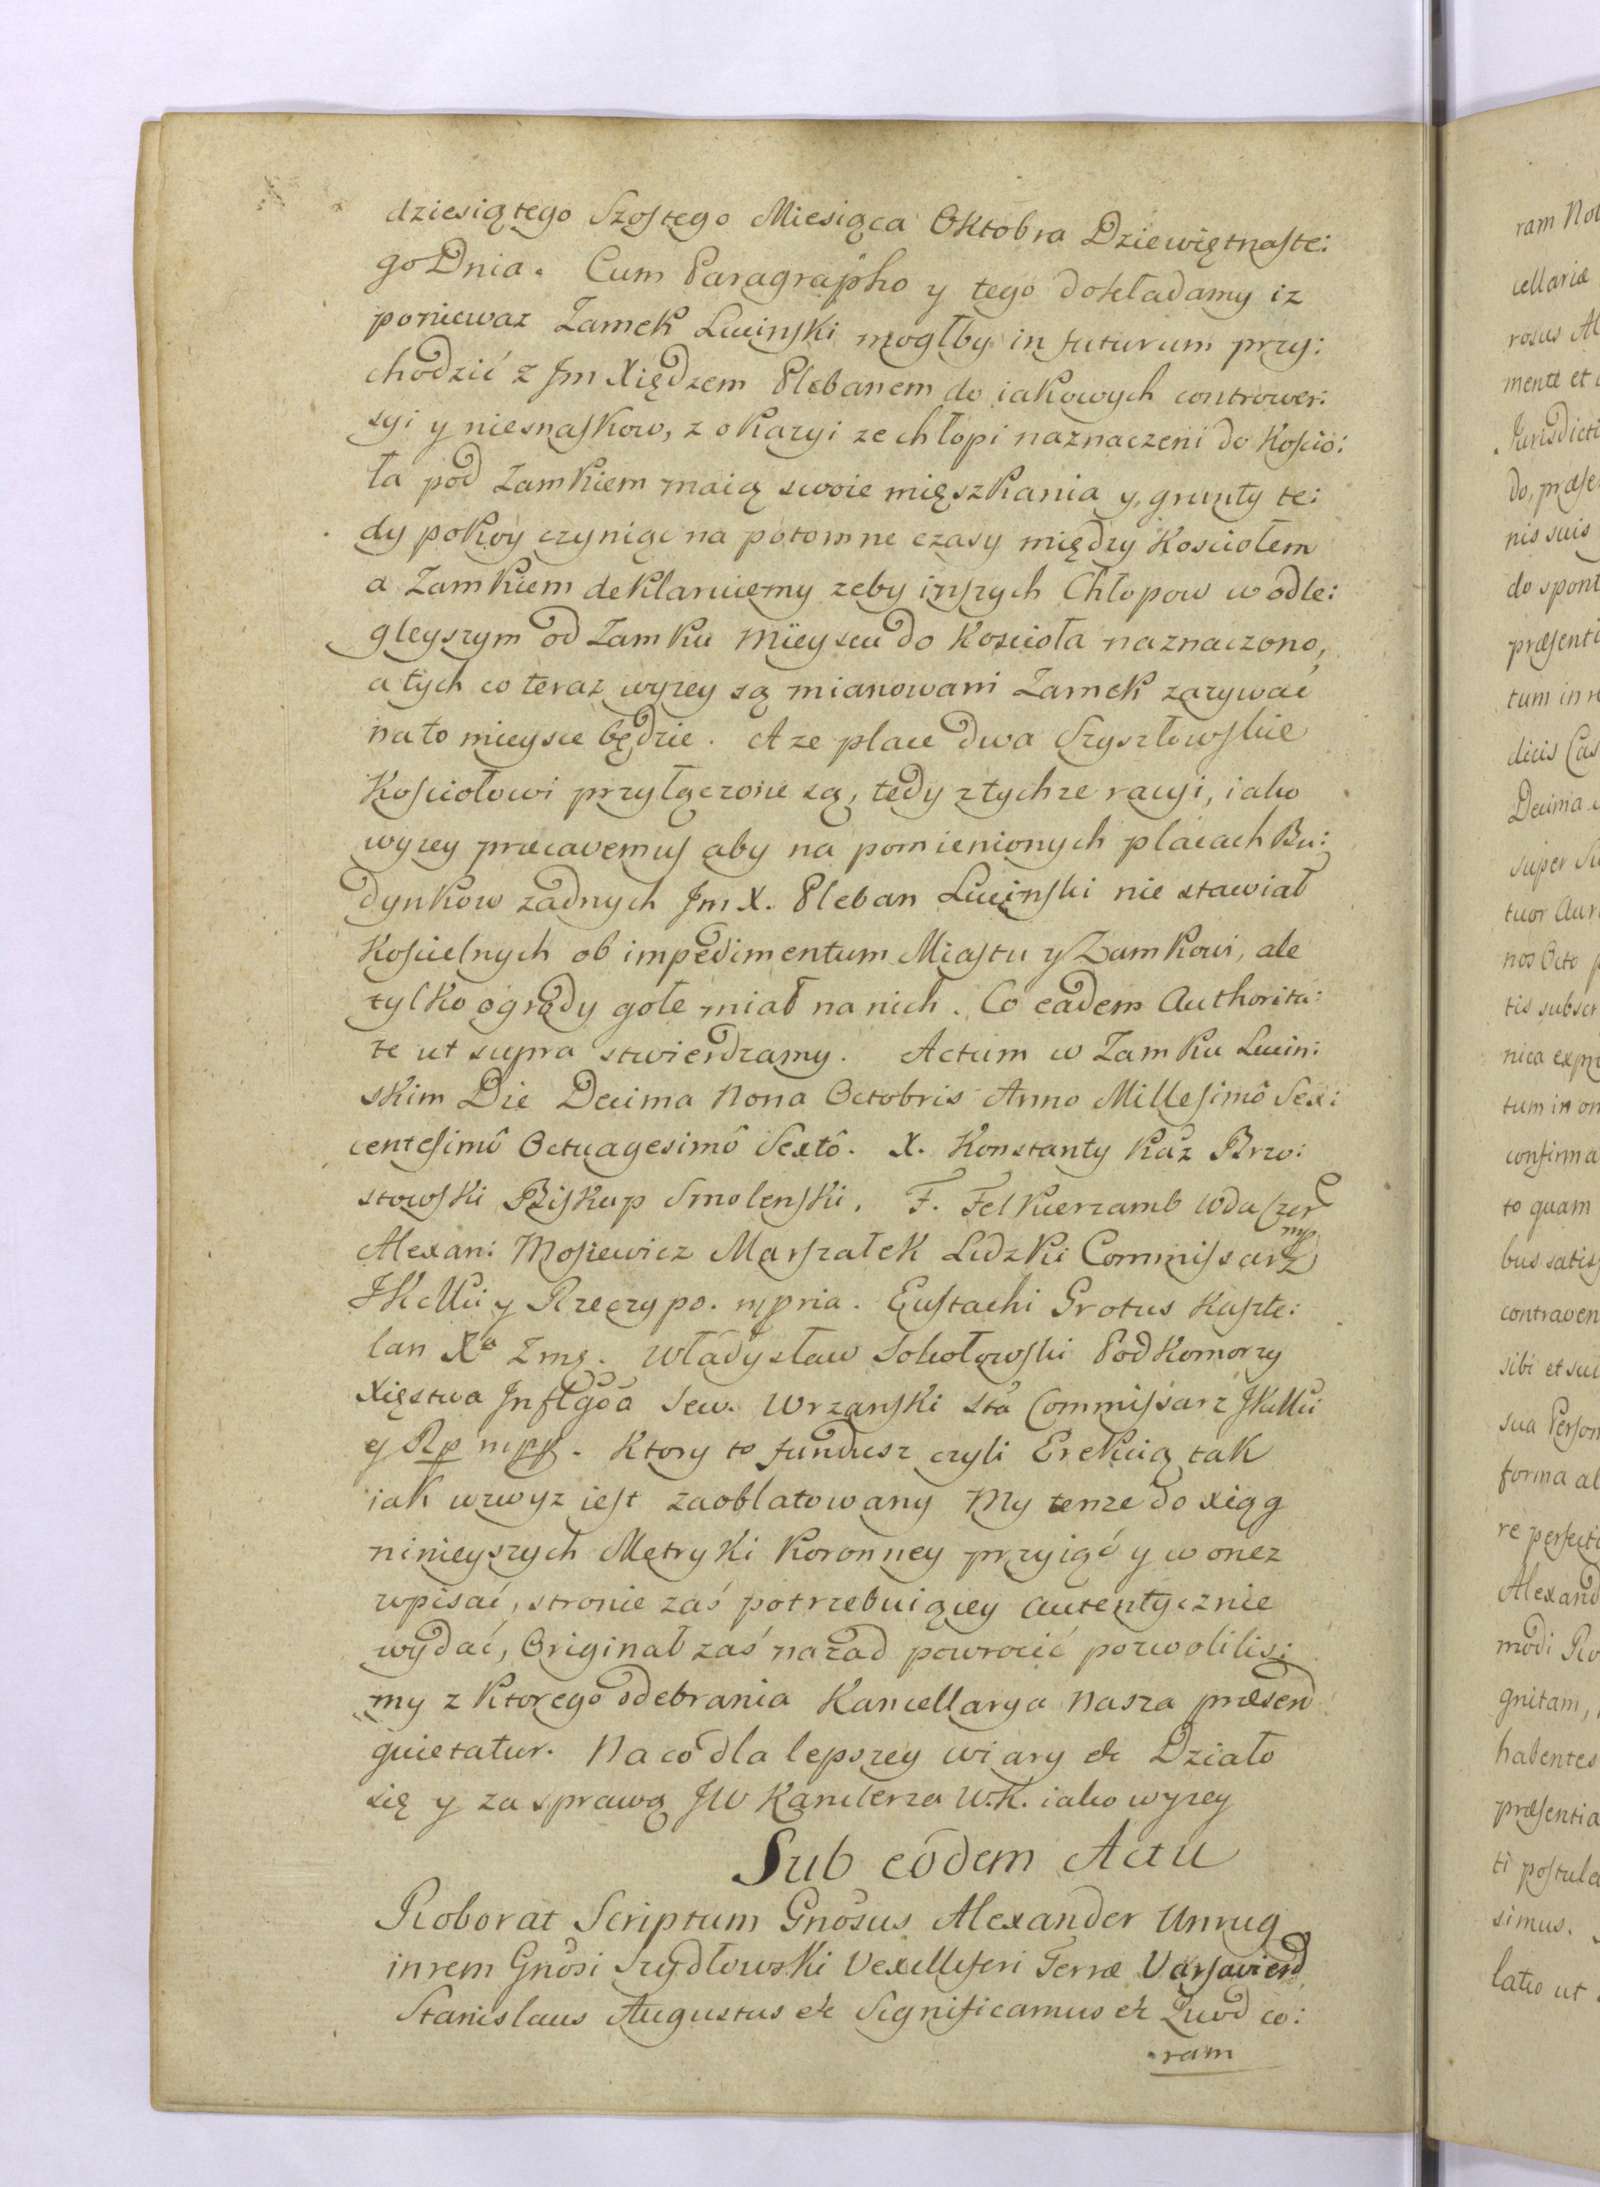 dziesiątego Szostego Miesiąca Oktobra Dziewiętnaste:
go Dnia. Cum Paragrapho y tego dokładamy iz
poniewaz Zamek Lucinski mogłby in futurum przy:
chodzić z Jm Xiędzem Plebanem do iakowych contrower:
syi y niesnaskow, z okazyi ze chłopi naznaczeni do Kościo:
ła pod Zamkiem maią swoie mięszkania y grunty te:
dy pokoy czyniąc na potomne czasy między Kosciołem
a Zamkiem deklaruiemy zeby inszych Chłopow w odle:
gleyszym od Zamku mieyscu do Koscioła naznaczono,
a tych co teraz wyzey są mianowani Zamek zazywać
na to mieysce będzie. A ze place dwa Szyszłowskie
Kosciołowi przyłączone są, tedy z tychze racyi, iako
wyzey præcavemus aby na pomienionych placach Bu:
dynkow zadnych Jm X. Pleban Lucinski nie stawiał
Koscielnych ob impedimentum Miastu y Zamkowi, ale
tylko ogrody gołe miał na nich. Co eadem Authorita:
te ut supra stwierdzamy. Actum w Zamku Lucin:
skim Die Decima Nona Octobris Anno Millesimô Sex:
centesimô Octuagesimô Sextô. X. Konstanty Kaz Brzo:
stowski Biskup Smolenski. F. Felkierzamb Wda Czer
mp
Alexan: Mosiewicz Marszałek Lidzki Commissarz
JKMci y Rzeczypo. mpria. Eustachi Grotus Kaszte:
lan Xa Zmę. Władysław Sokołowski Podkomorzy
Xięstwa Inflgo Sew. Wrzanski Sta Commissarz JKMci
y Rp mpp. Ktory to fundusz czyli Erekcią tak
iak wzwyz iest zaoblatowany My tenze do xiąg
ninieyszych Metryki Koronney przyiąć y w onez
wpisać, stronie zaś potrzebuiącey autentycznie
wydać, Originał zaś nazad powrocić pozwolilis:
my z ktorego odebrania Kancellarya Nasza præsend
quietatur. Na co dla lepszey wiary etc Działo
się y za sprawą JW Kanclerza W.K. iako wyzey
Sub eodem Actu
Roborat Scriptum Gnosus Alexander Unrug
in rem Gnosi Szydłowski Vexilliferi Terræ Varsaviend
Stanislaus Augustus etc Significamus etc Quod co:
ram